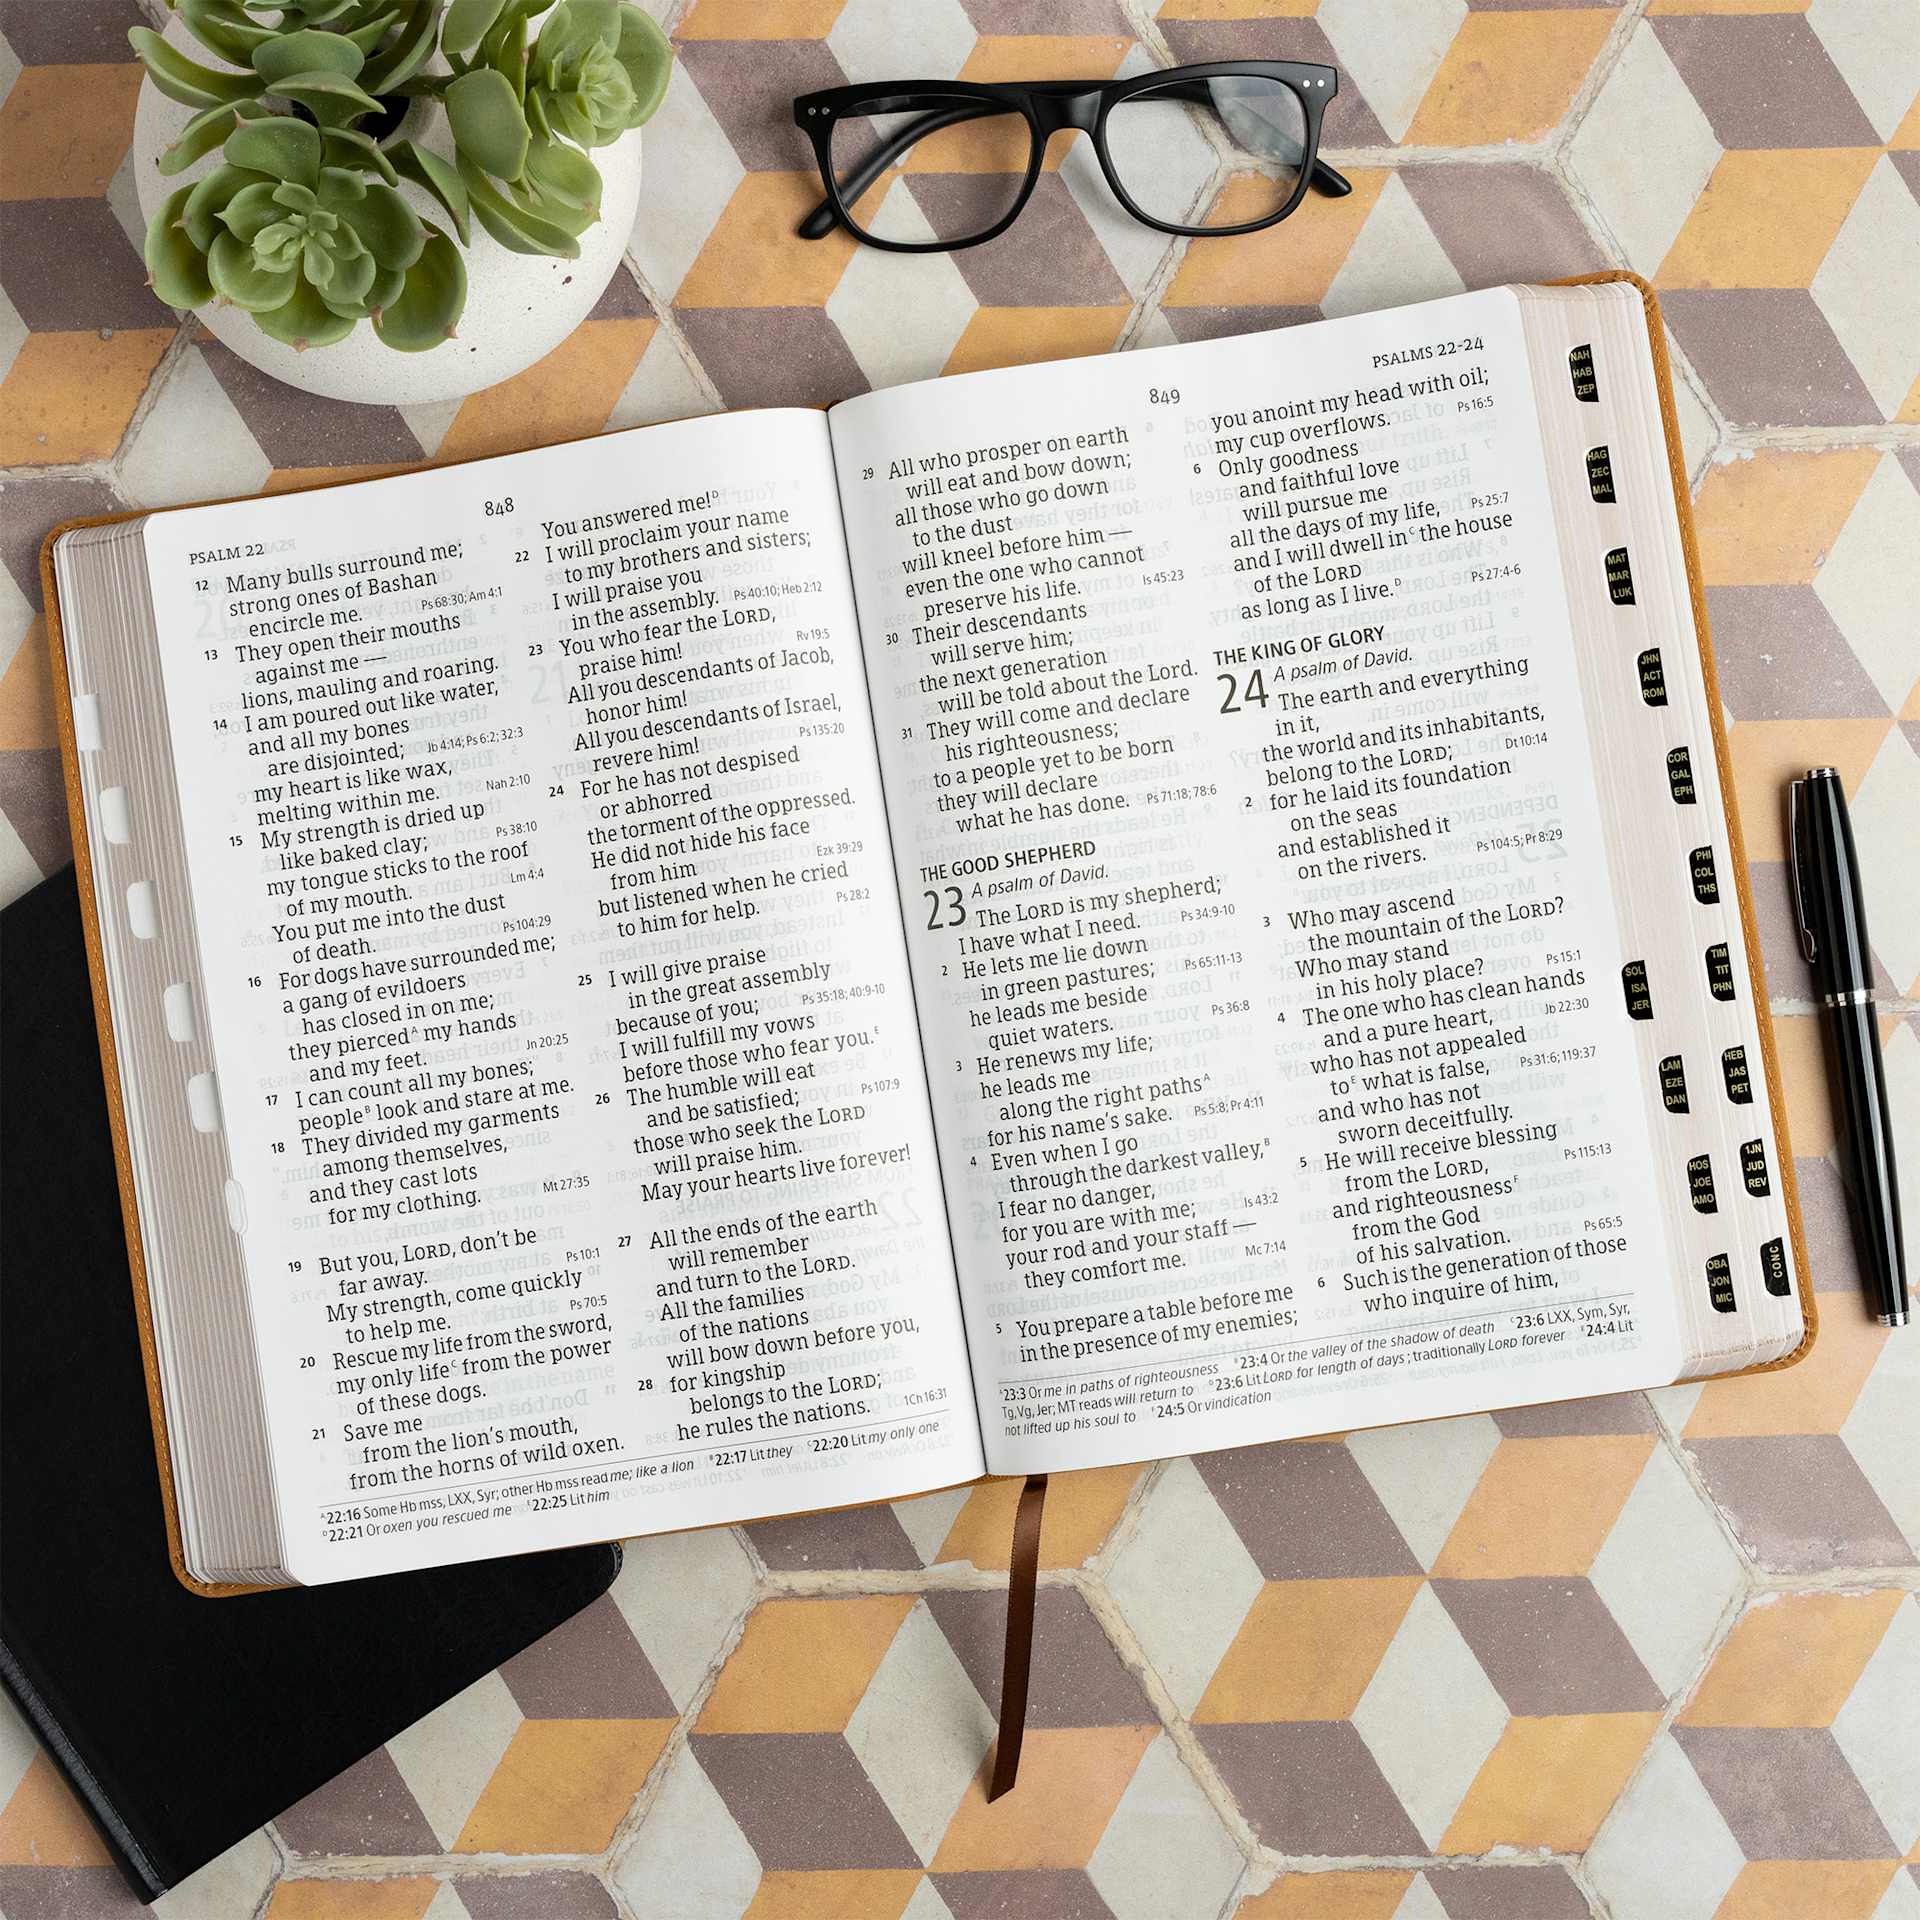 848
PSALM 22
12 Many bulls surround me;
strong ones of Bashan
encircle me. Ps 68:30; Am 4:1
13 They open their mouths
against me —
lions, mauling and roaring.
14 I am poured out like water,
and all my bones
are disjointed; Jb 4:14; Ps 6:2; 32:3
my heart is like wax,
melting within me. Nah 2:10
15 My strength is dried up
like baked clay; Ps 38:10
my tongue sticks to the roof
of my mouth. Lm 4:4
You put me into the dust
of death. Ps 104:29
16 For dogs have surrounded me;
a gang of evildoers
has closed in on me;
they pierced^A my hands
and my feet. Jn 20:25
17 I can count all my bones;
people^B look and stare at me.
18 They divided my garments
among themselves,
and they cast lots
for my clothing. Mt 27:35
19 But you, LORD, don't be
far away. Ps 10:1
My strength, come quickly
to help me. Ps 70:5
20 Rescue my life from the sword,
my only life^C from the power
of these dogs.
21 Save me
from the lion's mouth,
from the horns of wild oxen.
You answered me!^D
22 I will proclaim your name
to my brothers and sisters;
I will praise you
in the assembly. Ps 40:10; Heb 2:12
23 You who fear the LORD,
praise him! Rv 19:5
All you descendants of Jacob,
honor him!
All you descendants of Israel,
revere him! Ps 135:20
24 For he has not despised
or abhorred
the torment of the oppressed.
He did not hide his face
from him Ezk 39:29
but listened when he cried
to him for help. Ps 28:2
25 I will give praise
in the great assembly
because of you; Ps 35:18; 40:9-10
I will fulfill my vows
before those who fear you.^E
26 The humble will eat
and be satisfied; Ps 107:9
those who seek the LORD
will praise him.
May your hearts live forever!
27 All the ends of the earth
will remember
and turn to the LORD.
All the families
of the nations
will bow down before you,
28 for kingship
belongs to the LORD;
he rules the nations. 1Ch 16:31
^A 22:16 Some Hb mss, LXX, Syr; other Hb mss read me; like a lion ^B 22:17 Lit they ^C 22:20 Lit my only one
^D 22:21 Or oxen you rescued me ^E 22:25 Lit him
849
PSALMS 22-24
29 All who prosper on earth
will eat and bow down;
all those who go down
to the dust
will kneel before him —
even the one who cannot
preserve his life. Is 45:23
30 Their descendants
will serve him;
the next generation
will be told about the Lord.
31 They will come and declare
his righteousness;
to a people yet to be born
they will declare
what he has done. Ps 71:18; 78:6
THE GOOD SHEPHERD
23 A psalm of David.
The LORD is my shepherd;
I have what I need. Ps 34:9-10
2 He lets me lie down
in green pastures; Ps 65:11-13
he leads me beside
quiet waters. Ps 36:8
3 He renews my life;
he leads me
along the right paths^A
for his name's sake. Ps 5:8; Pr 4:11
4 Even when I go
through the darkest valley,^B
I fear no danger,
for you are with me; Is 43:2
your rod and your staff —
they comfort me. Mc 7:14
5 You prepare a table before me
in the presence of my enemies;
you anoint my head with oil;
my cup overflows. Ps 16:5
6 Only goodness
and faithful love
will pursue me
all the days of my life, Ps 25:7
and I will dwell in^C the house
of the LORD
as long as I live.^D Ps 27:4-6
THE KING OF GLORY
24 A psalm of David.
The earth and everything
in it,
the world and its inhabitants,
belong to the LORD; Dt 10:14
2 for he laid its foundation
on the seas
and established it
on the rivers. Ps 104:5; Pr 8:29
3 Who may ascend
the mountain of the LORD?
Who may stand
in his holy place? Ps 15:1
4 The one who has clean hands
and a pure heart, Jb 22:30
who has not appealed
to^E what is false, Ps 31:6; 119:37
and who has not
sworn deceitfully.
5 He will receive blessing
from the LORD, Ps 115:13
and righteousness^F
from the God
of his salvation. Ps 65:5
6 Such is the generation of those
who inquire of him,
^A 23:3 Or me in paths of righteousness ^B 23:4 Or the valley of the shadow of death ^C 23:6 LXX, Sym, Syr,
Tg, Vg, Jer; MT reads will return to ^D 23:6 Lit LORD for length of days; traditionally LORD forever ^E 24:4 Lit
not lifted up his soul to ^F 24:5 Or vindication
NAH
HAB
ZEP
HAG
ZEC
MAL
MAT
MAR
LUK
JHN
ACT
ROM
COR
GAL
EPH
PHI
COL
THS
TIM
TIT
PHN
SOL
ISA
JER
HEB
JAS
PET
LAM
EZE
DAN
1JN
JUD
REV
HOS
JOE
AMO
CONC
OBA
JON
MIC